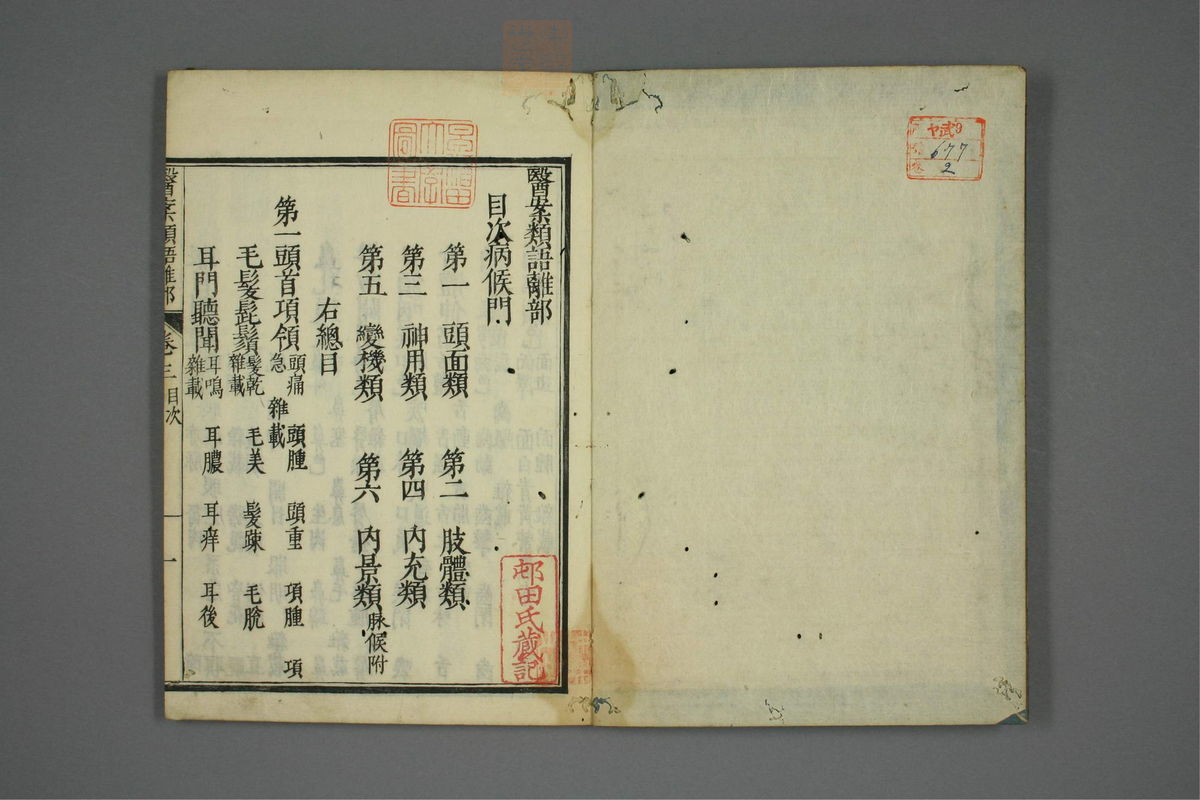 ヤ武9
677
2
醫案類語離部
目次病候門
第一 頭面類 第二 肢體類
第三 神用類 第四 内充類
第五 變機類 第六 内景類 脉候附
右總目
第一頭首項領 頭痛 頭腫 頭重 項腫 項急 雜載
毛髮髭鬚 髮乾 毛美 髮踈 毛脫 雜載
耳門聽聞 耳鳴 耳膿 耳痒 耳後 雜載
醫案類語離部 卷三 目次 一
邨田氏藏記